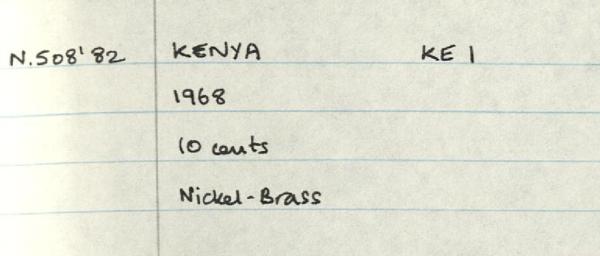 N.508'82 KENYA KE 1
1968
10 cents
Nickel-Brass